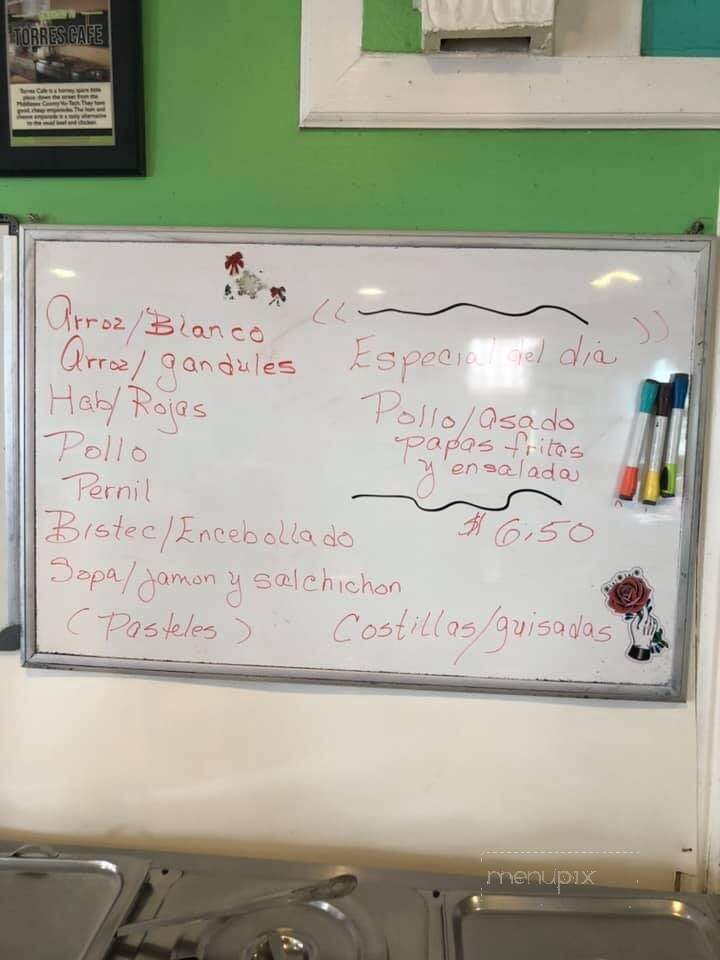 TORRES CAFE
Torres Cafe is a homey, spare little
place, down the street from the
Middlesex County Vo-Tech. They have
good, cheap empanadas. The ham and
cheese empanada is a tasty alternative
to the usual beef and chicken.
Arroz/Blanco
Arroz/gandules
Hab/Rojas
Pollo
Pernil
Bistec/Encebollado
Sopa/Jamon y salchichon
(Pasteles)
Especial del dia
Pollo/asado
papas fritas
y ensalada
$6.50
Costillas/guisadas
menupix